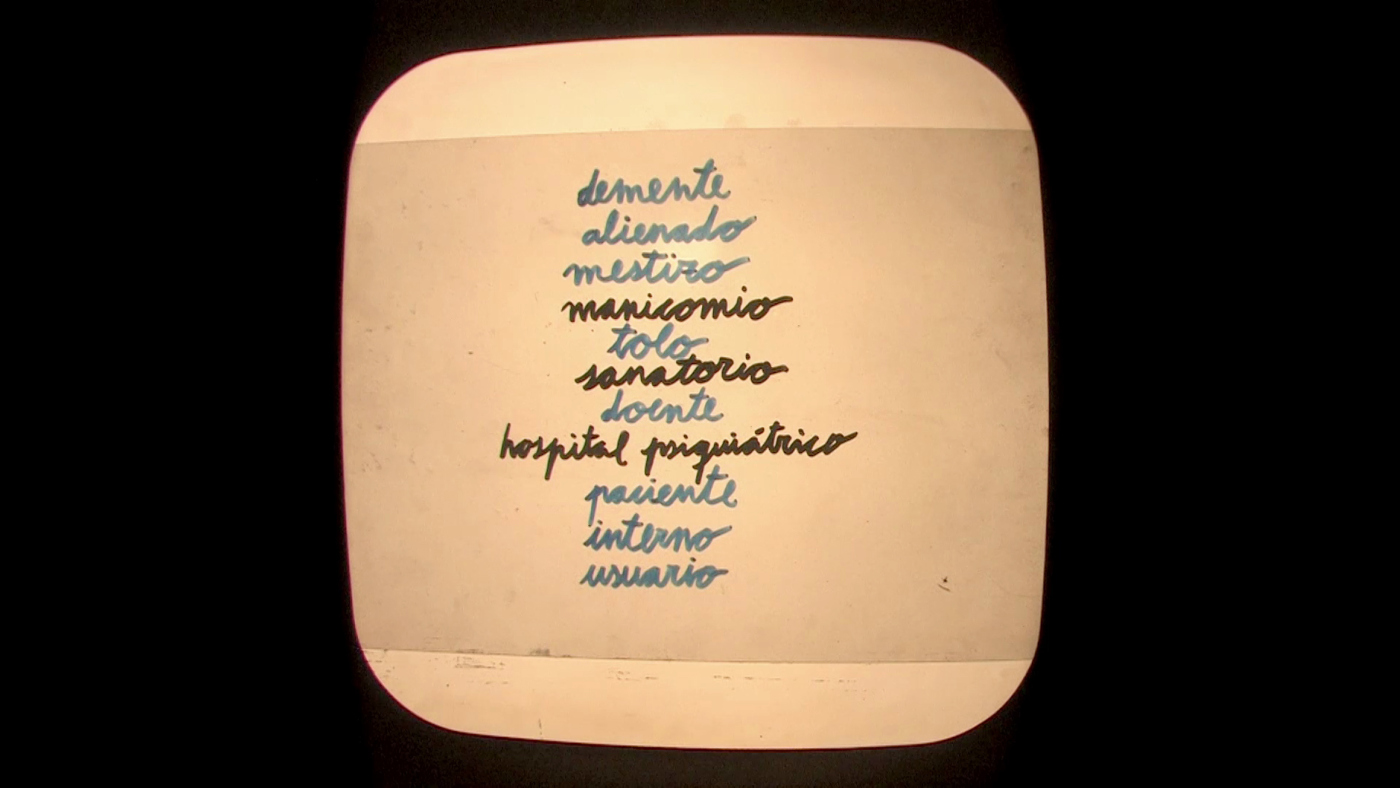 demente
alienado
mestizo
manicomio
tolo
sanatorio
doente
hospital psiquiátrico
paciente
interno
usuario